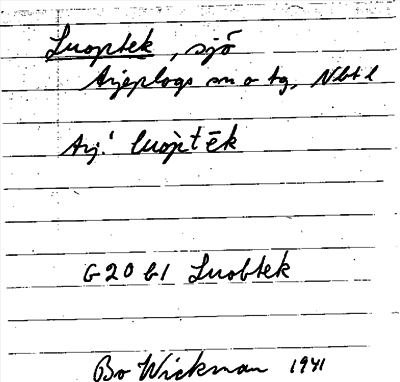 Luoptek, sjö
Arjeplogs sn o tg, Nbt l
Arj. luop̀tēk
G20 b1 Luobtek
Bo Wickman 1941